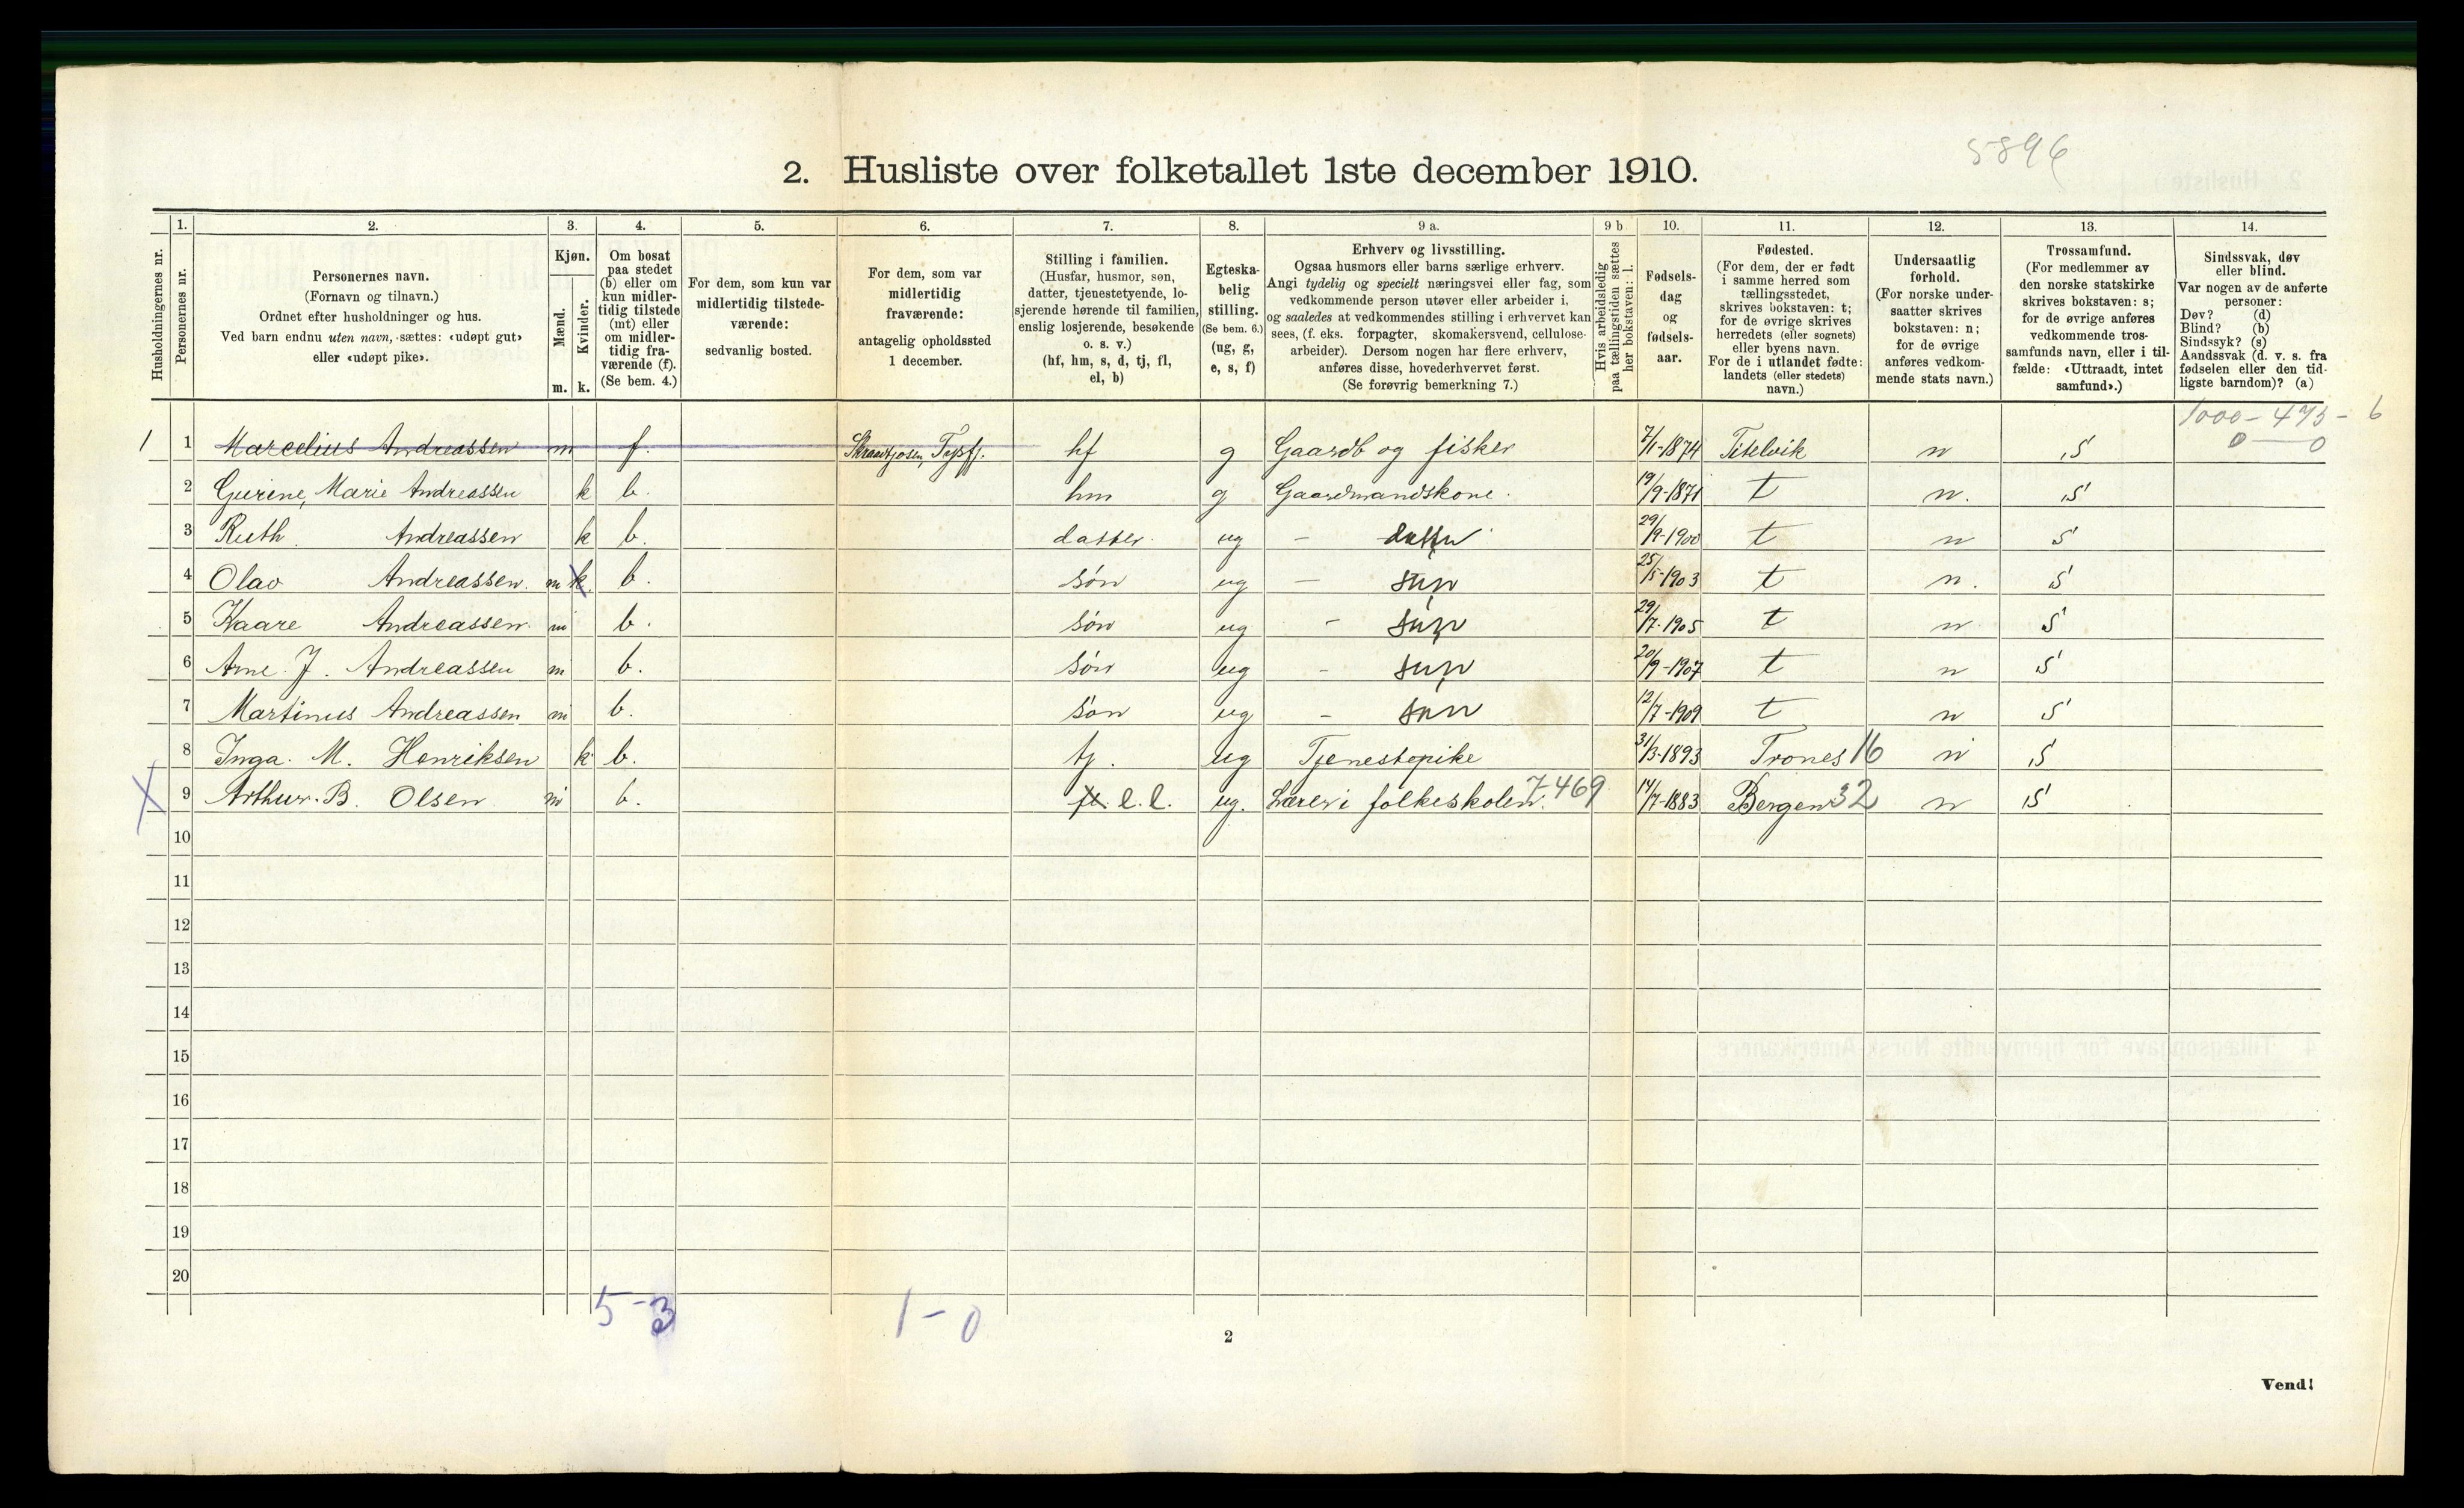 5896
2. Husliste over folketallet 1ste december 1910.
1. 2. 3. 4. 5. 6. 7. 8. 9 a. 9 b 10. 11. 12. 13. 14.
Husholdningernes nr.
Personernes nr.
Personernes navn.
(Fornavn og tilnavn.)
Ordnet efter husholdninger og hus.
Ved barn endnu uten navn, sættes: «udøpt gut»
eller «udøpt pike».
Kjøn.
Mænd.
Kvinder.
m. k.
Om bosat
paa stedet
(b) eller om
kun midler-
tidig tilstede
(mt) eller
om midler-
tidig fra-
værende (f).
(Se bem. 4.)
For dem, som kun var
midlertidig tilstede-
værende:
sedvanlig bosted.
For dem, som var
midlertidig
fraværende:
antagelig opholdssted
1 december.
Stilling i familien.
(Husfar, husmor, søn,
datter, tjenestetyende, lo-
sjerende hørende til familien,
enslig losjerende, besøkende
o. s. v.)
(hf, hm, s, d, tj, fl,
el, b)
Egteska-
belig
stilling.
(Se bem. 6.)
(ug, g,
e, s, f)
Erhverv og livsstilling.
Ogsaa husmors eller barns særlige erhverv.
Angi tydelig og specielt næringsvei eller fag, som
vedkommende person utøver eller arbeider i,
og saaledes at vedkommendes stilling i erhvervet kan
sees, (f. eks. forpagter, skomakersvend, cellulose-
arbeider). Dersom nogen har flere erhverv,
anføres disse, hovederhvervet først.
(Se forøvrig bemerkning 7.)
Hvis arbeidsledig
paa tællingstiden sættes
her bokstaven: l.
Fødsels-
dag
og
fødsels-
aar.
Fødested.
(For dem, der er født
i samme herred som
tællingsstedet,
skrives bokstaven: t;
for de øvrige skrives
herredets (eller sognets)
eller byens navn.
For de i utlandet fødte:
landets (eller stedets)
navn.)
Undersaatlig
forhold.
(For norske under-
saatter skrives
bokstaven: n;
for de øvrige
anføres vedkom-
mende stats navn.)
Trossamfund.
(For medlemmer av
den norske statskirke
skrives bokstaven: s;
for de øvrige anføres
vedkommende tros-
samfunds navn, eller i til-
fælde: «Uttraadt, intet
samfund».)
Sindssvak, døv
eller blind.
Var nogen av de anførte
personer:
Døv? (d)
Blind? (b)
Sindssyk? (s)
Aandssvak (d. v. s. fra
fødselen eller den tid-
ligste barndom)? (a)
1000 - 475 - 6
0 — 0
1 1 Marcelius Andreassen m f. hf g Gaardb og fisker 7/1-1874 Titelvik n s
2 Gurine, Marie Andreassen k b. hm g Gaardmandskone. 19/9-1871 t n. s
3 Ruth Andreassen k b. datter ug - datter 29/9-1900 t n s
4 Olav Andreassen. m k. b. søn ug - søn 25/5-1903 t n. s
5 Kaare Andreassen m b. søn ug - søn 29/7-1905 t n s
6 Arne J. Andreassen m b. søn ug - søn 20/9-1907 t n s
7 Martinus Andreassen m b. søn ug - søn 12/7-1909 t n s
8 Inga M. Henriksen k b. tj. ug Tjenestepike 31/3-1893 Trones 16 n s
X 9 Arthur B. Olsen m b. fl. e.l. ug. Lærer i folkeskolen. 7-469 14/7-1883 Bergen 32 n s
10
11
12
13
14
15
16
17
18
19
20
5-3
1-0
2
Vend!